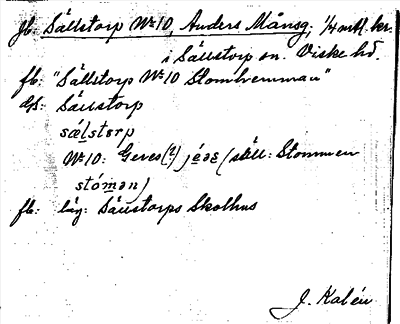 fb: Sällstorp No 10, Anders Månsg; 1/4 mtl. kr.
i Sällstorp sn. Viske hd.
fb: "Sällstorp No 10 Stomhemman"
Sällstorp
sælstɵrp
No 10: Geres(?) (ställ: Stommen
stómən)
fb: läg: Sällstorps Skolhus
J. Kalén